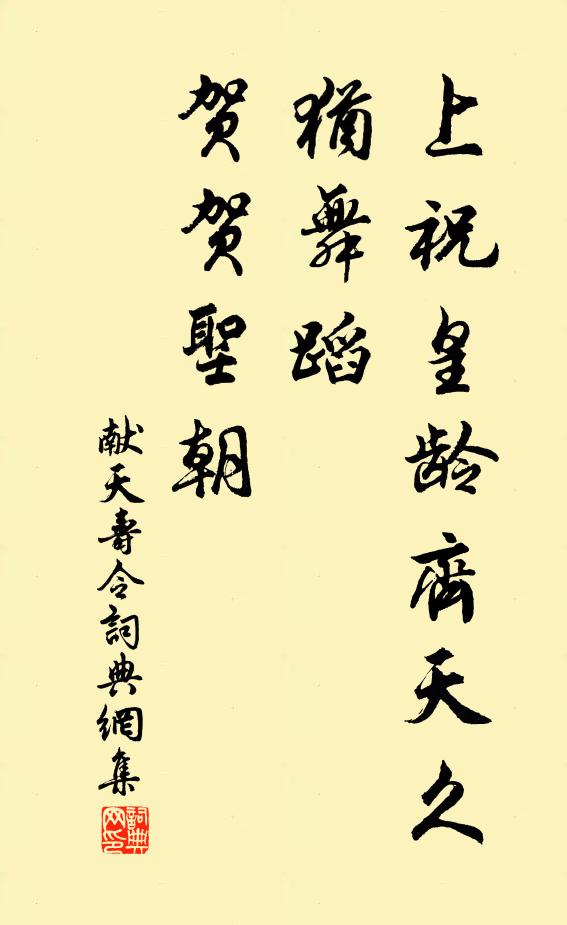 上祝皇龄齊天久
猶舞蹈
贺贺聖朝
献天壽令詞典網集
詞典网印